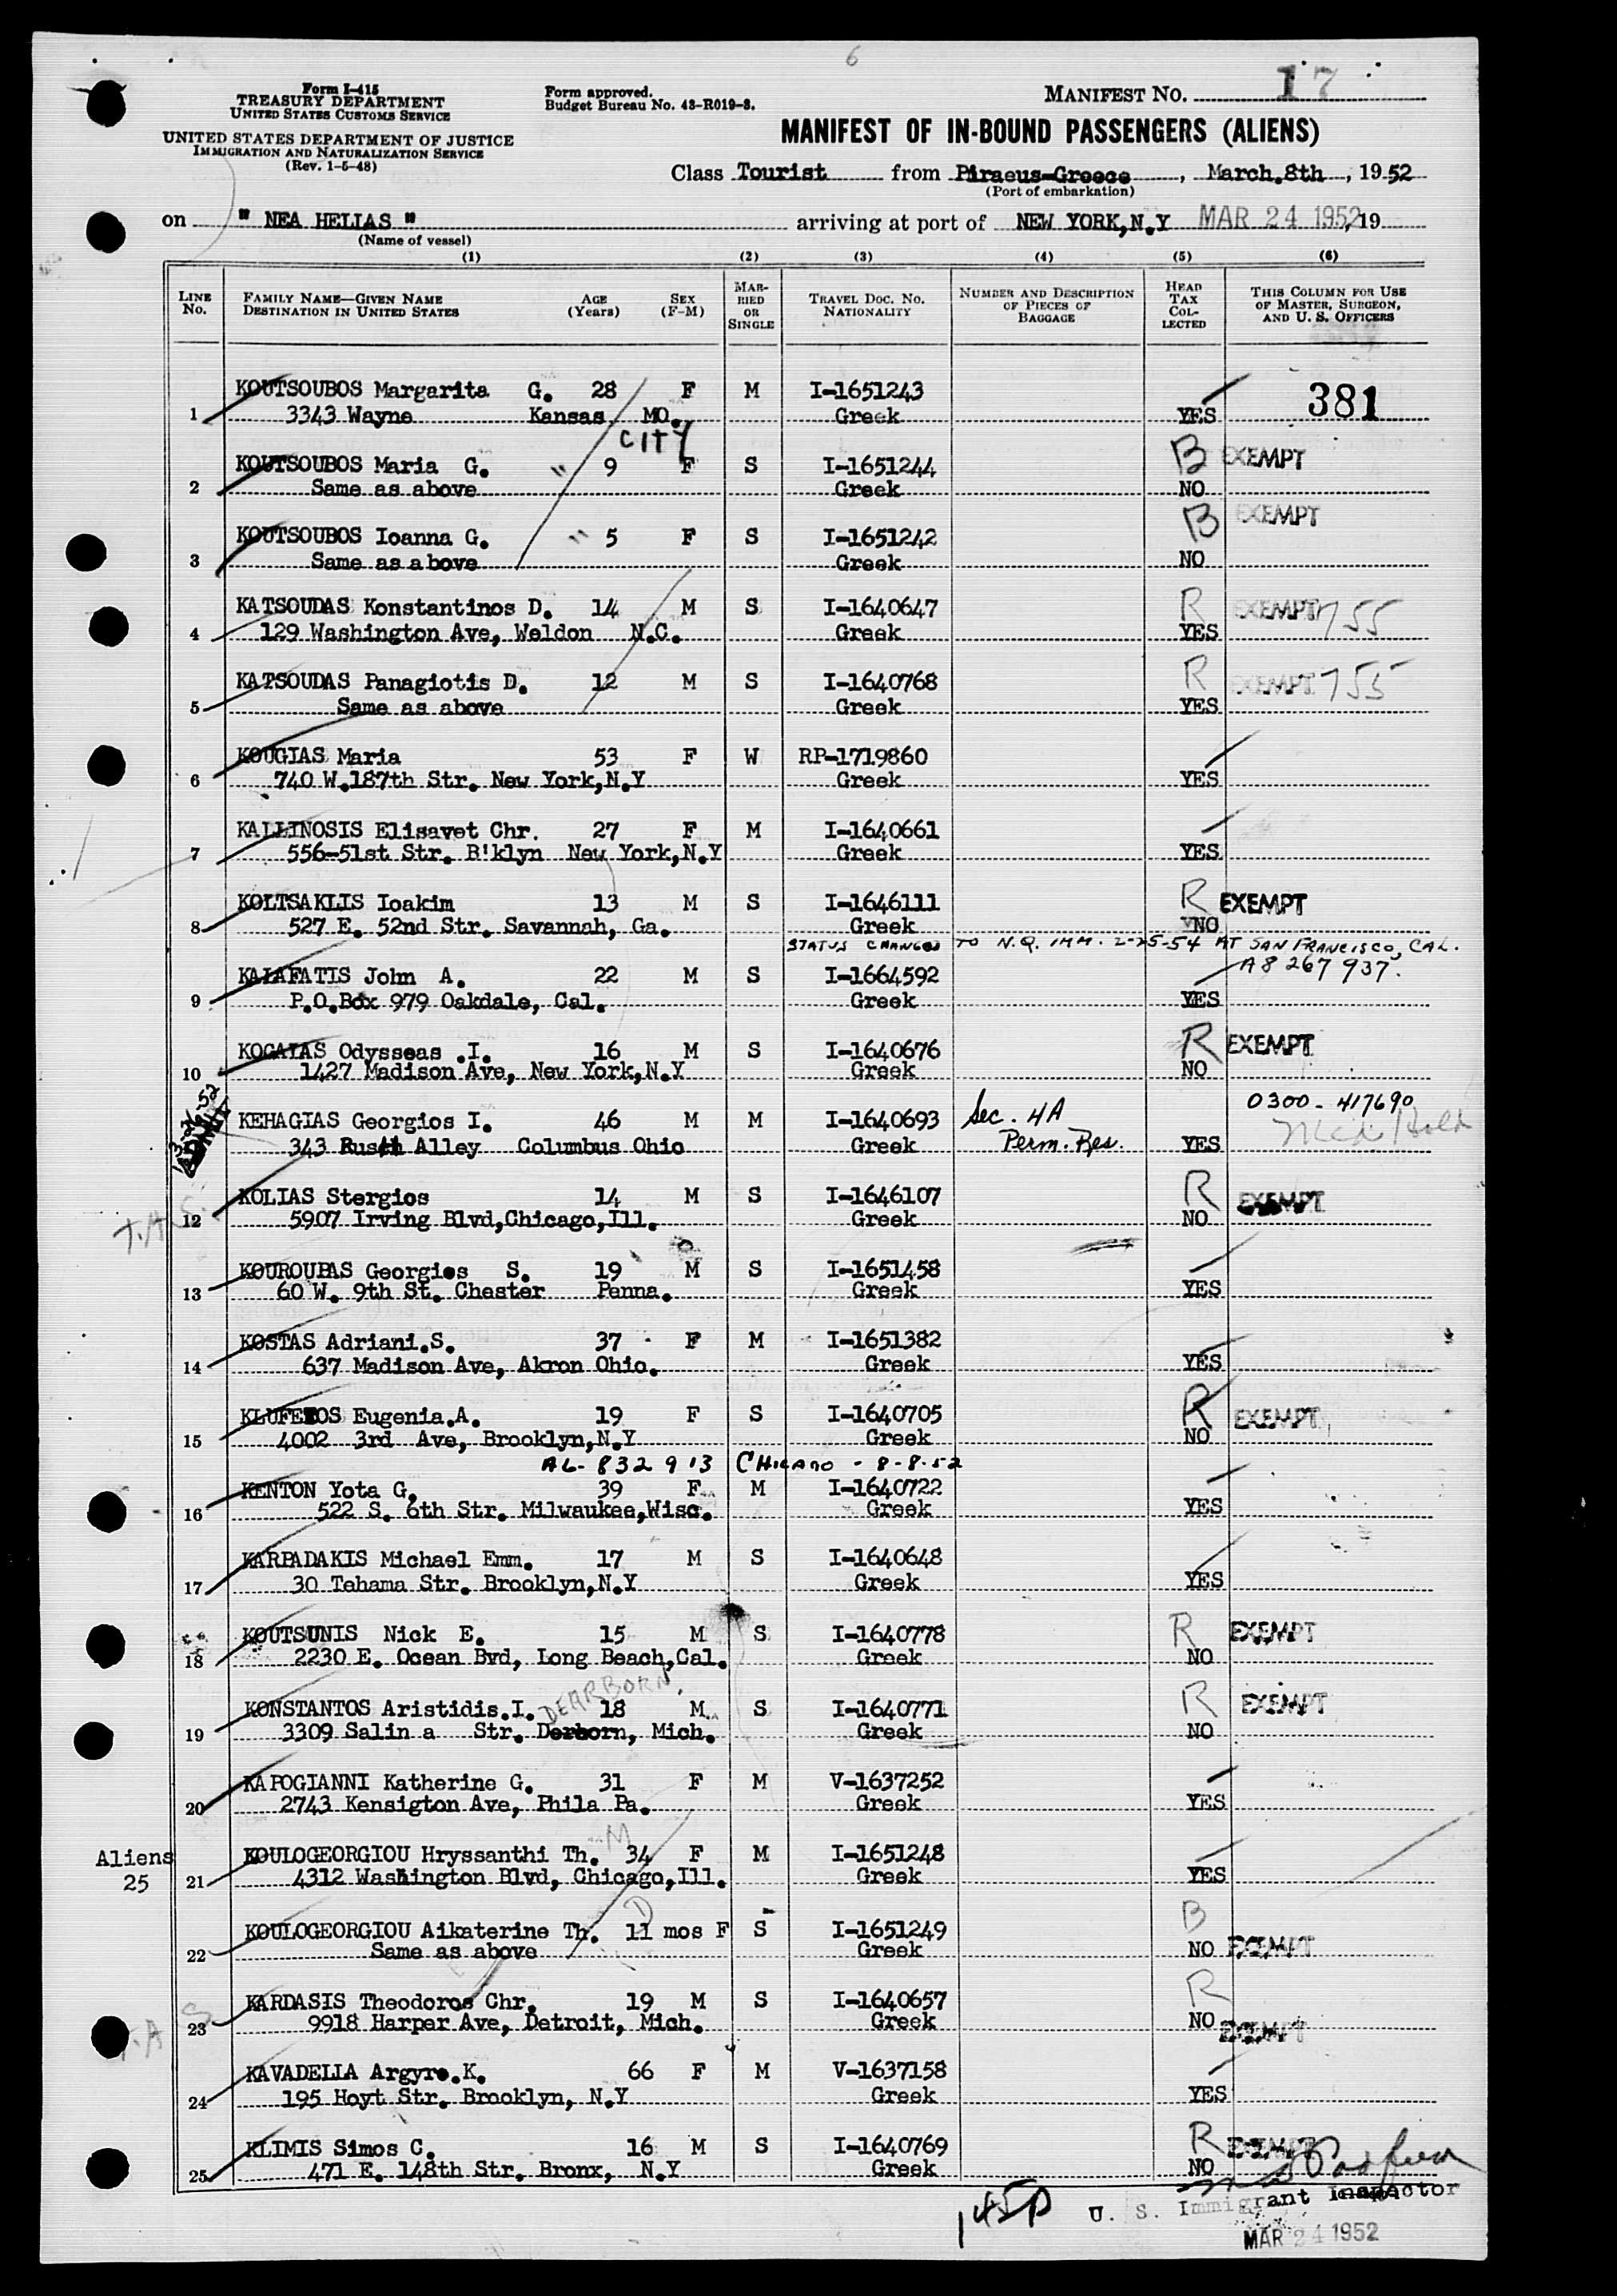 6
Form I-415
TREASURY DEPARTMENT
UNITED STATES CUSTOMS SERVICE
UNITED STATES DEPARTMENT OF JUSTICE
IMMIGRATION AND NATURALIZATION SERVICE
(Rev. 1-5-48)
Form approved.
Budget Bureau No. 43-R019-3.
MANIFEST NO. 17
MANIFEST OF IN-BOUND PASSENGERS (ALIENS)
Class Tourist from Piraeus-Greece, March.8th, 1952
(Port of embarkation)
on " NEA HELIAS " arriving at port of NEW YORK,N.Y MAR 24 1952, 19
(Name of vessel)
(1) (2) (3) (4) (5) (6)
LINE No. FAMILY NAME—GIVEN NAME DESTINATION IN UNITED STATES AGE (Years) SEX (F-M) MARRIED OR SINGLE TRAVEL DOC. NO. NATIONALITY NUMBER AND DESCRIPTION OF PIECES OF BAGGAGE HEAD TAX COLLECTED THIS COLUMN FOR USE OF MASTER, SURGEON, AND U. S. OFFICERS
KOUTSOUBOS Margarita G. 28 F M I-1651243 381
1 3343 Wayne Kansas MO. Greek YES
CITY
KOUTSOUBOS Maria G. " 9 F S I-1651244 B EXEMPT
2 Same as above Greek NO
KOUTSOUBOS Ioanna G. " 5 F S I-1651242 B EXEMPT
3 Same as above Greek NO
KATSOUDAS Konstantinos D. 14 M S I-1640647 R EXEMPT 755
4 129 Washington Ave, Weldon N.C. Greek YES
KATSOUDAS Panagiotis D. 12 M S I-1640768 R EXEMPT 755
5 Same as above Greek YES
KOUGIAS Maria 53 F W RP-1719860
6 740 W.187th Str. New York,N.Y Greek YES
KALLINOSIS Elisavet Chr. 27 F M I-1640661
7 556-51st Str. B'klyn New York,N.Y Greek YES
KOLTSAKLIS Ioakim 13 M S I-1646111 R EXEMPT
8 527 E. 52nd Str. Savannah, Ga. Greek NO
STATUS CHANGED TO N.Q. IMM. 2-25-54 AT SAN FRANCISCO, CAL.
A8 267 937.
KALAFATIS John A. 22 M S I-1664592
9 P.O.Box 979 Oakdale, Cal. Greek YES
KOGAIAS Odysseas .I. 16 M S I-1640676 R EXEMPT
10 1427 Madison Ave, New York,N.Y Greek NO
KEHAGIAS Georgios I. 46 M M I-1640693 Sec. 4A 0300-417690
343 Rusth Alley Columbus Ohio Greek Perm. Res. YES
KOLIAS Stergios 14 M S I-1646107 R EXEMPT
12 5907 Irving Blvd,Chicago,Ill. Greek NO
KOUROUPAS Georgios S. 19 M S I-1651458
13 60 W. 9th St. Chester Penna. Greek YES
KOSTAS Adriani.S. 37 F M I-1651382
14 637 Madison Ave, Akron Ohio. Greek YES
KLUFETOS Eugenia.A. 19 F S I-1640705 R EXEMPT
15 4002 3rd Ave, Brooklyn,N.Y Greek NO
AL-832913 CHICAGO - 8-8-52
KENTON Yota G. 39 F M I-1640722
16 522 S. 6th Str. Milwaukee,Wisc. Greek YES
KARPADAKIS Michael Emm. 17 M S I-1640648
17 30 Tehama Str. Brooklyn,N.Y Greek YES
KOUTSUNIS Nick E. 15 M S I-1640778 R EXEMPT
18 2230 E. Ocean Bvd, Long Beach,Cal. Greek NO
DEARBORN.
KONSTANTOS Aristidis.I. 18 M S I-1640771 R EXEMPT
19 3309 Salin a Str. Derborn, Mich. Greek NO
KAPOGIANNI Katherine G. 31 F M V-1637252
20 2743 Kensigton Ave, Phila Pa. Greek YES
Aliens
25
KOULOGEORGIOU Hryssanthi Th. 34 F M I-1651248
21 4312 Washington Blvd, Chicago,Ill. Greek YES
KOULOGEORGIOU Aikaterine Th. 11 mos F S I-1651249 B
22 Same as above Greek NO EXEMPT
KARDASIS Theodoros Chr. 19 M S I-1640657 R
23 9918 Harper Ave, Detroit, Mich. Greek NO EXEMPT
KAVADELLA Argyro.K. 66 F M V-1637158
24 195 Hoyt Str. Brooklyn, N.Y Greek YES
KLIMIS Simos C. 16 M S I-1640769 R EXEMPT
25 471 E. 148th Str. Bronx, N.Y Greek NO
U. S. Immigrant Inspector
MAR 24 1952